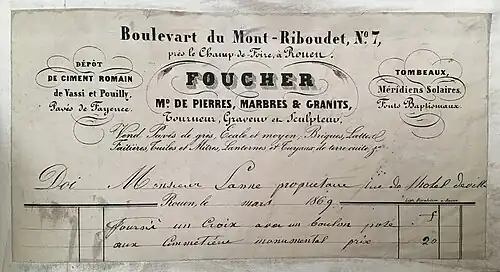 Boulevart du Mont-Riboudet, No. 7,
près le Champ-de-Foire, à Rouen.
DÉPÔT
DE CIMENT ROMAIN
de Vassi et Pouilly,
Pavés de Fayence.
FOUCHER
Md. DE PIERRES, MARBRES & GRANITS,
Tourneur, Graveur et Sculpteur,
TOMBEAUX,
Méridiens Solaires,
Fonts Baptismaux.
Vend Pavés de grès, Ecale et moyen, Briques, Lattes,
Faîtières, Tuiles et Mitres, Lanternes et Tuyaux de terre cuite, &a
Doi Monsieur Lanne propriétaire rue de l'hotel de ville
Rouen, le mars 1869
fournit un Croix avec un boulon posé
aux Commetière monumental prix 20